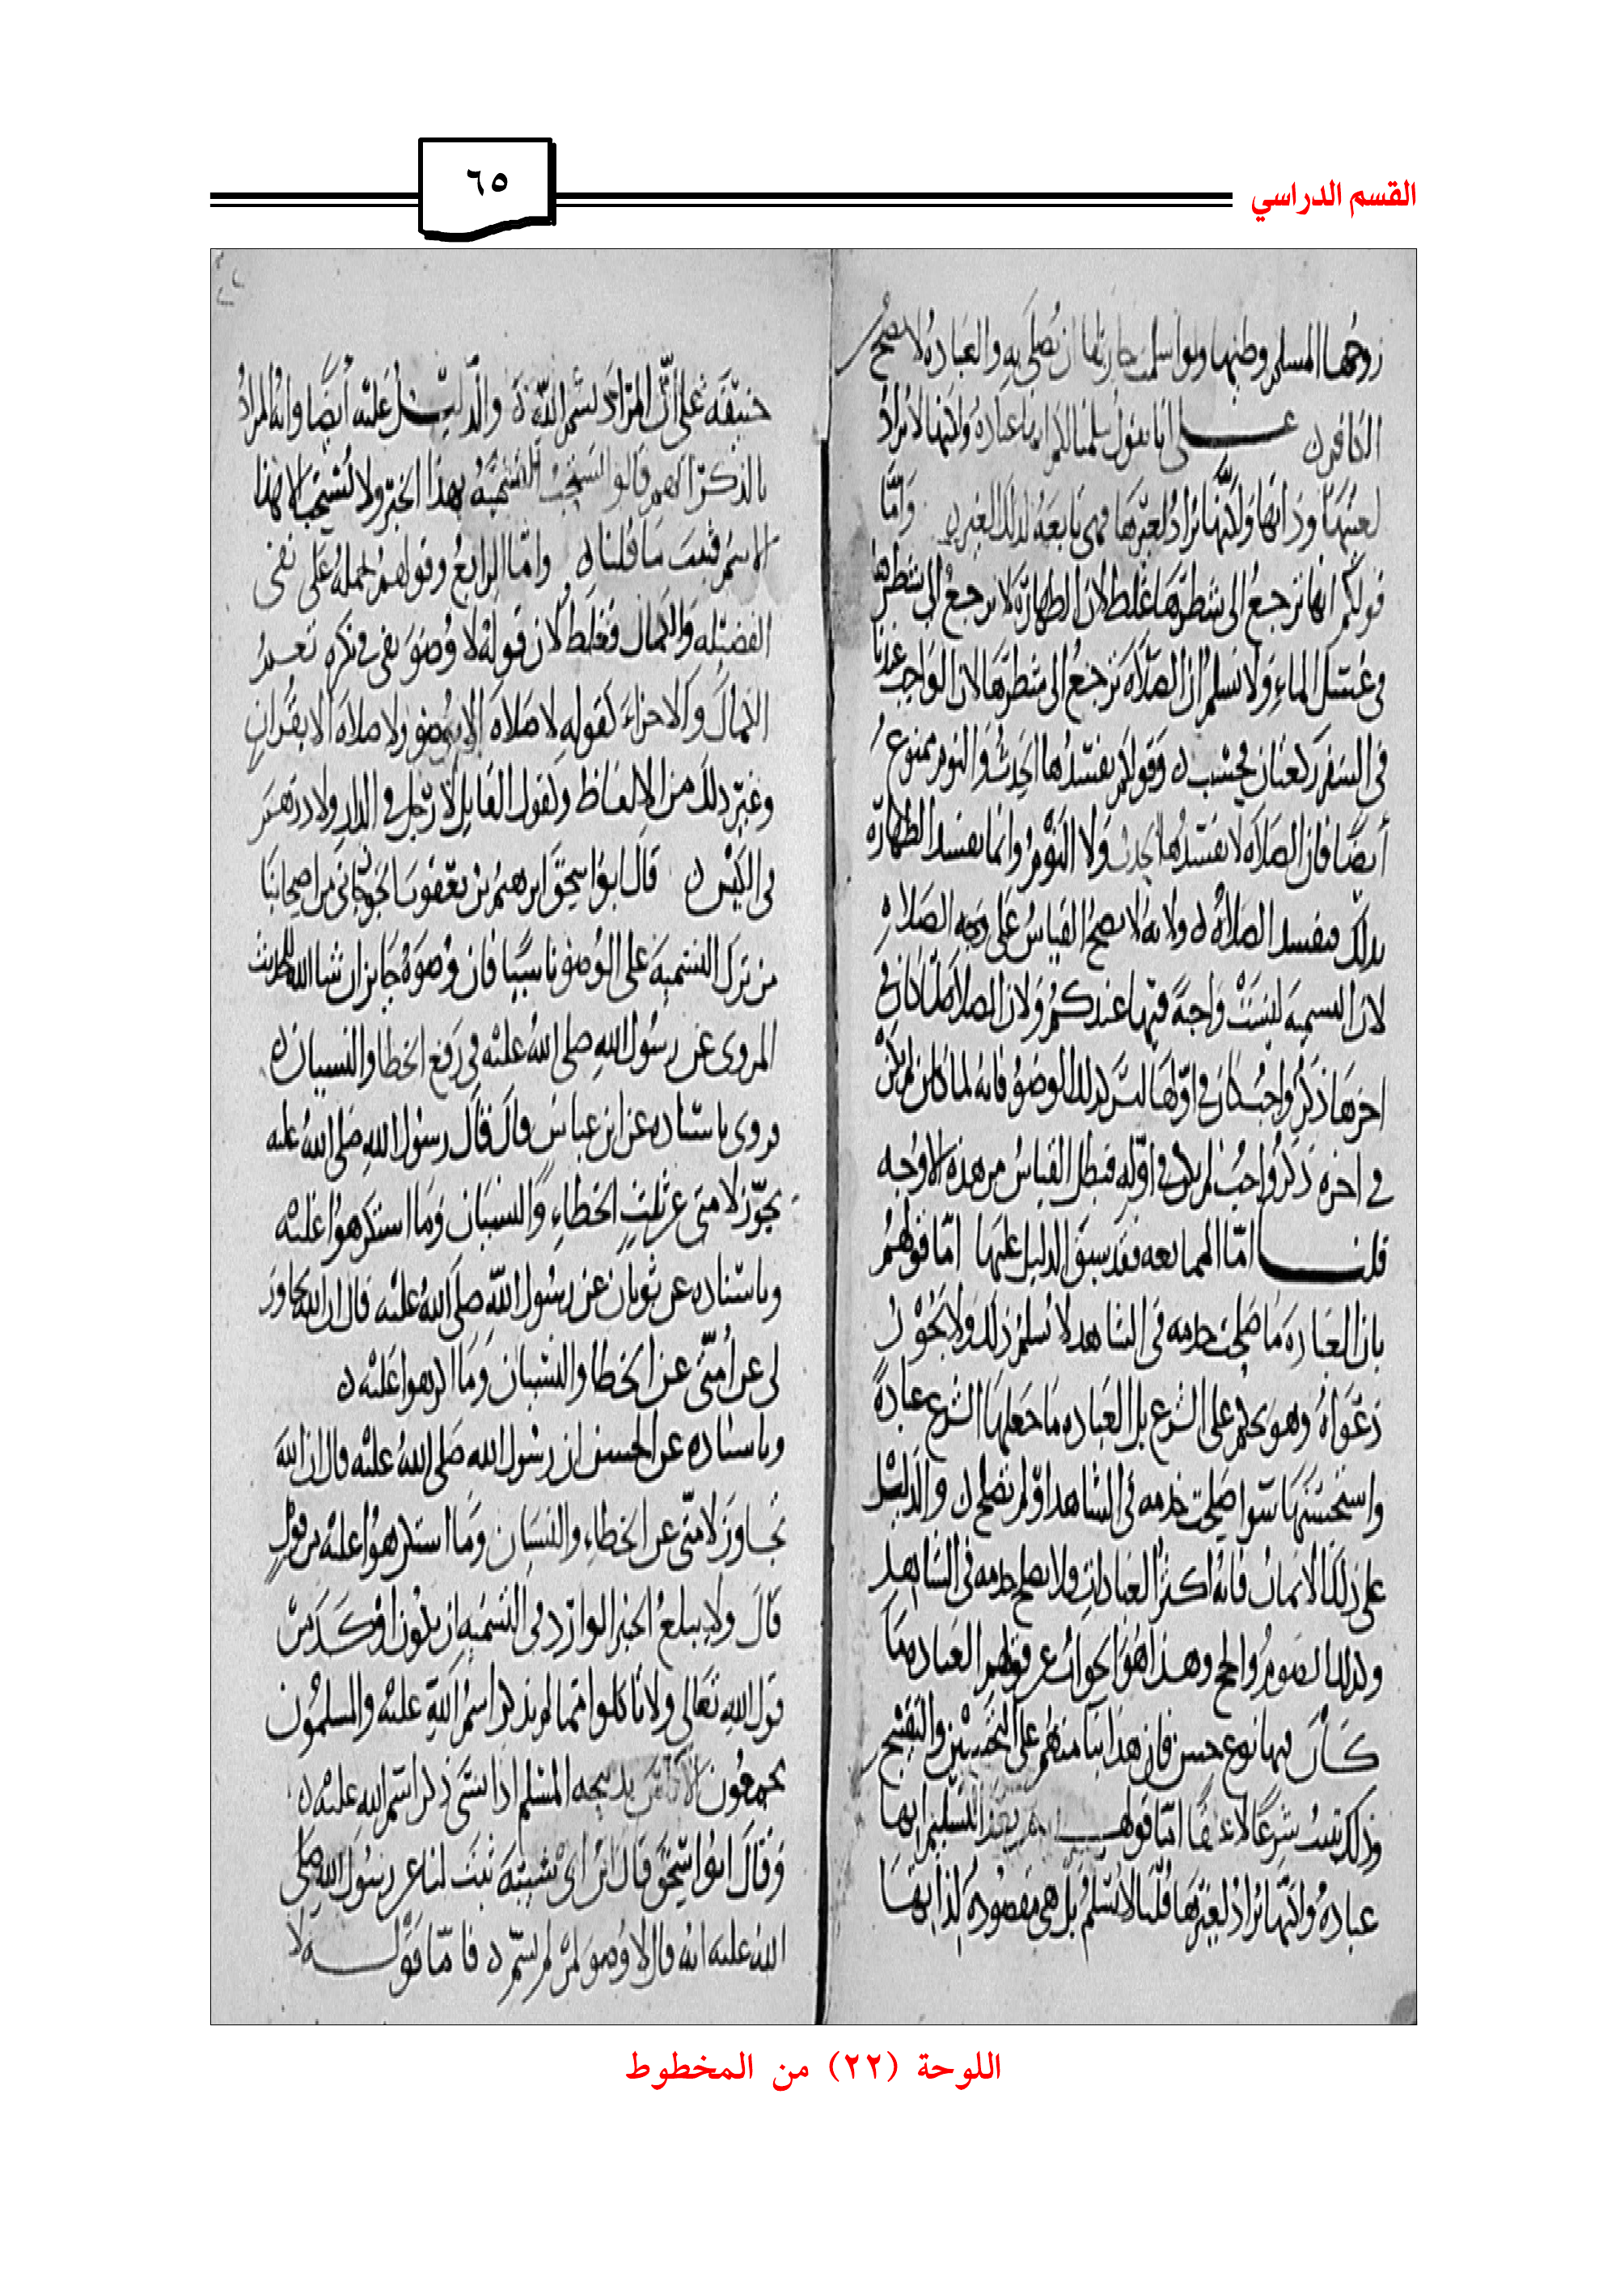 القسم الدراسي
٦٥
زوجها المسلم وطئها ولو اسلمت جاز لها ان تصلي به والعباده لا تصح
الكافر على انا نقول سلمنا لكم انها عباده ولكنها لا تراد
لعينها وذاتها ولكنها تراد لغيرها فهي تابعة لذلك الغير وأما
قولكم انها ترجع الى شطرها غلط لان الطهارة لا ترجع الى شطرها
في غسل الماء ولا نسلم ان الصلاة ترجع الى شطرها لان الواجب عندنا
في السفر ركعتان فحسب وقولكم يفسدها الحدث والنوم ممنوع
أيضا فان الصلاة لا يفسدها الحدث ولا النوم وانما يفسد الطهارة
بذلك فيفسد الصلاة ولانه لا يصح القياس على وجه الصلاة
لان التسمية ليست واجبة فيها عندكم ولان الصلاة لما كان في
اخرها ذكر واجب كان في اولها ليس كذلك الوضوء فانه لما كان لم يكن
في اخره ذكر واجب لم يكن في اوله فبطل القياس من هذه الاوجه
قلنا اما الممانعه فقد سبق الدليل عليها اما قولهم
بان العباده ما صلحت خدمه في الشاهد لا نسلم ذلك ولا يجوز
دعواه وهو تحكم على الشرع بل العباده ما جعلها الشرع عبادة
واستحسنها سوا صلحت خدمه في الشاهد او لم تصلح والدليل
على ذلك الايمان فانه اكبر العبادات ولا يصلح خدمه في الشاهد
وكذلك الصوم والحج وهذا هو الجواب عن قولهم العباده ما
كان فيها نوع حسن فان هذا بنا منهم على التحسين والتقبيح
وذلك يثبت شرعا لا عقلا اما قولهم بعد التسليم انها
عبادة ولكنها تراد لغيرها قلنا لا نسلم بل هي مقصودة لذاتها
حنيفة على أن المراد بسم الله والدليل عليه أيضا وانه المراد
بالذكر انهم قالوا تستحب التسمية بهذا الخبر ولا تستحب الا بهذا
الاسم فثبت ما قلناه واما الرابع وقولهم حمله على نفي
الفضيله والكمال فغلط لان قوله لا وضوء نفي في نكره تعم
الكمال والاجزاء كقوله لا صلاة الا بوضوء ولا صلاة الا بقران
وغير ذلك من الالفاظ وكقول القايل لا رجل في الدار ولا درهم
في الكيس قال ابو اسحق ابرهيم بن يعقوب الجوزجاني من اصحابنا
من ترك التسمية على الوضوء ناسيا فان وضوءه جايز ان شا الله للحديث
المروي عن رسول الله صلى الله عليه في رفع الخطا والنسيان
وروى باسناده عن ابن عباس قال قال رسول الله صلى الله عليه
تجوز لامتي عن ثلث الخطاء والنسيان وما استكرهوا عليه
وباسناده عن ثوبان عن رسول الله صلى الله عليه قال ان الله تجاوز
لي عن أمتي عن الخطا والنسيان وما اكرهوا عليه
وباسناده عن الحسن ان رسول الله صلى الله عليه قال ان الله
تجاوز لامتي عن الخطاء والنسيان وما استكرهوا عليه من قول
قال ولا يبلغ الخبر الوارد في التسمية ان يكون اوكد من
قول الله تعالى ولا تاكلوا مما لم يذكر اسم الله عليه والمسلمون
يجمعون ذبيحه المسلم اذا نسي ذكر اسم الله عليه
وقال ابو اسحق قال ثبت لنا عن رسول الله صلى
الله عليه انه قال لا وضوء لمن لم يسم فاما قوله لا
اللوحة (٢٢) من المخطوط